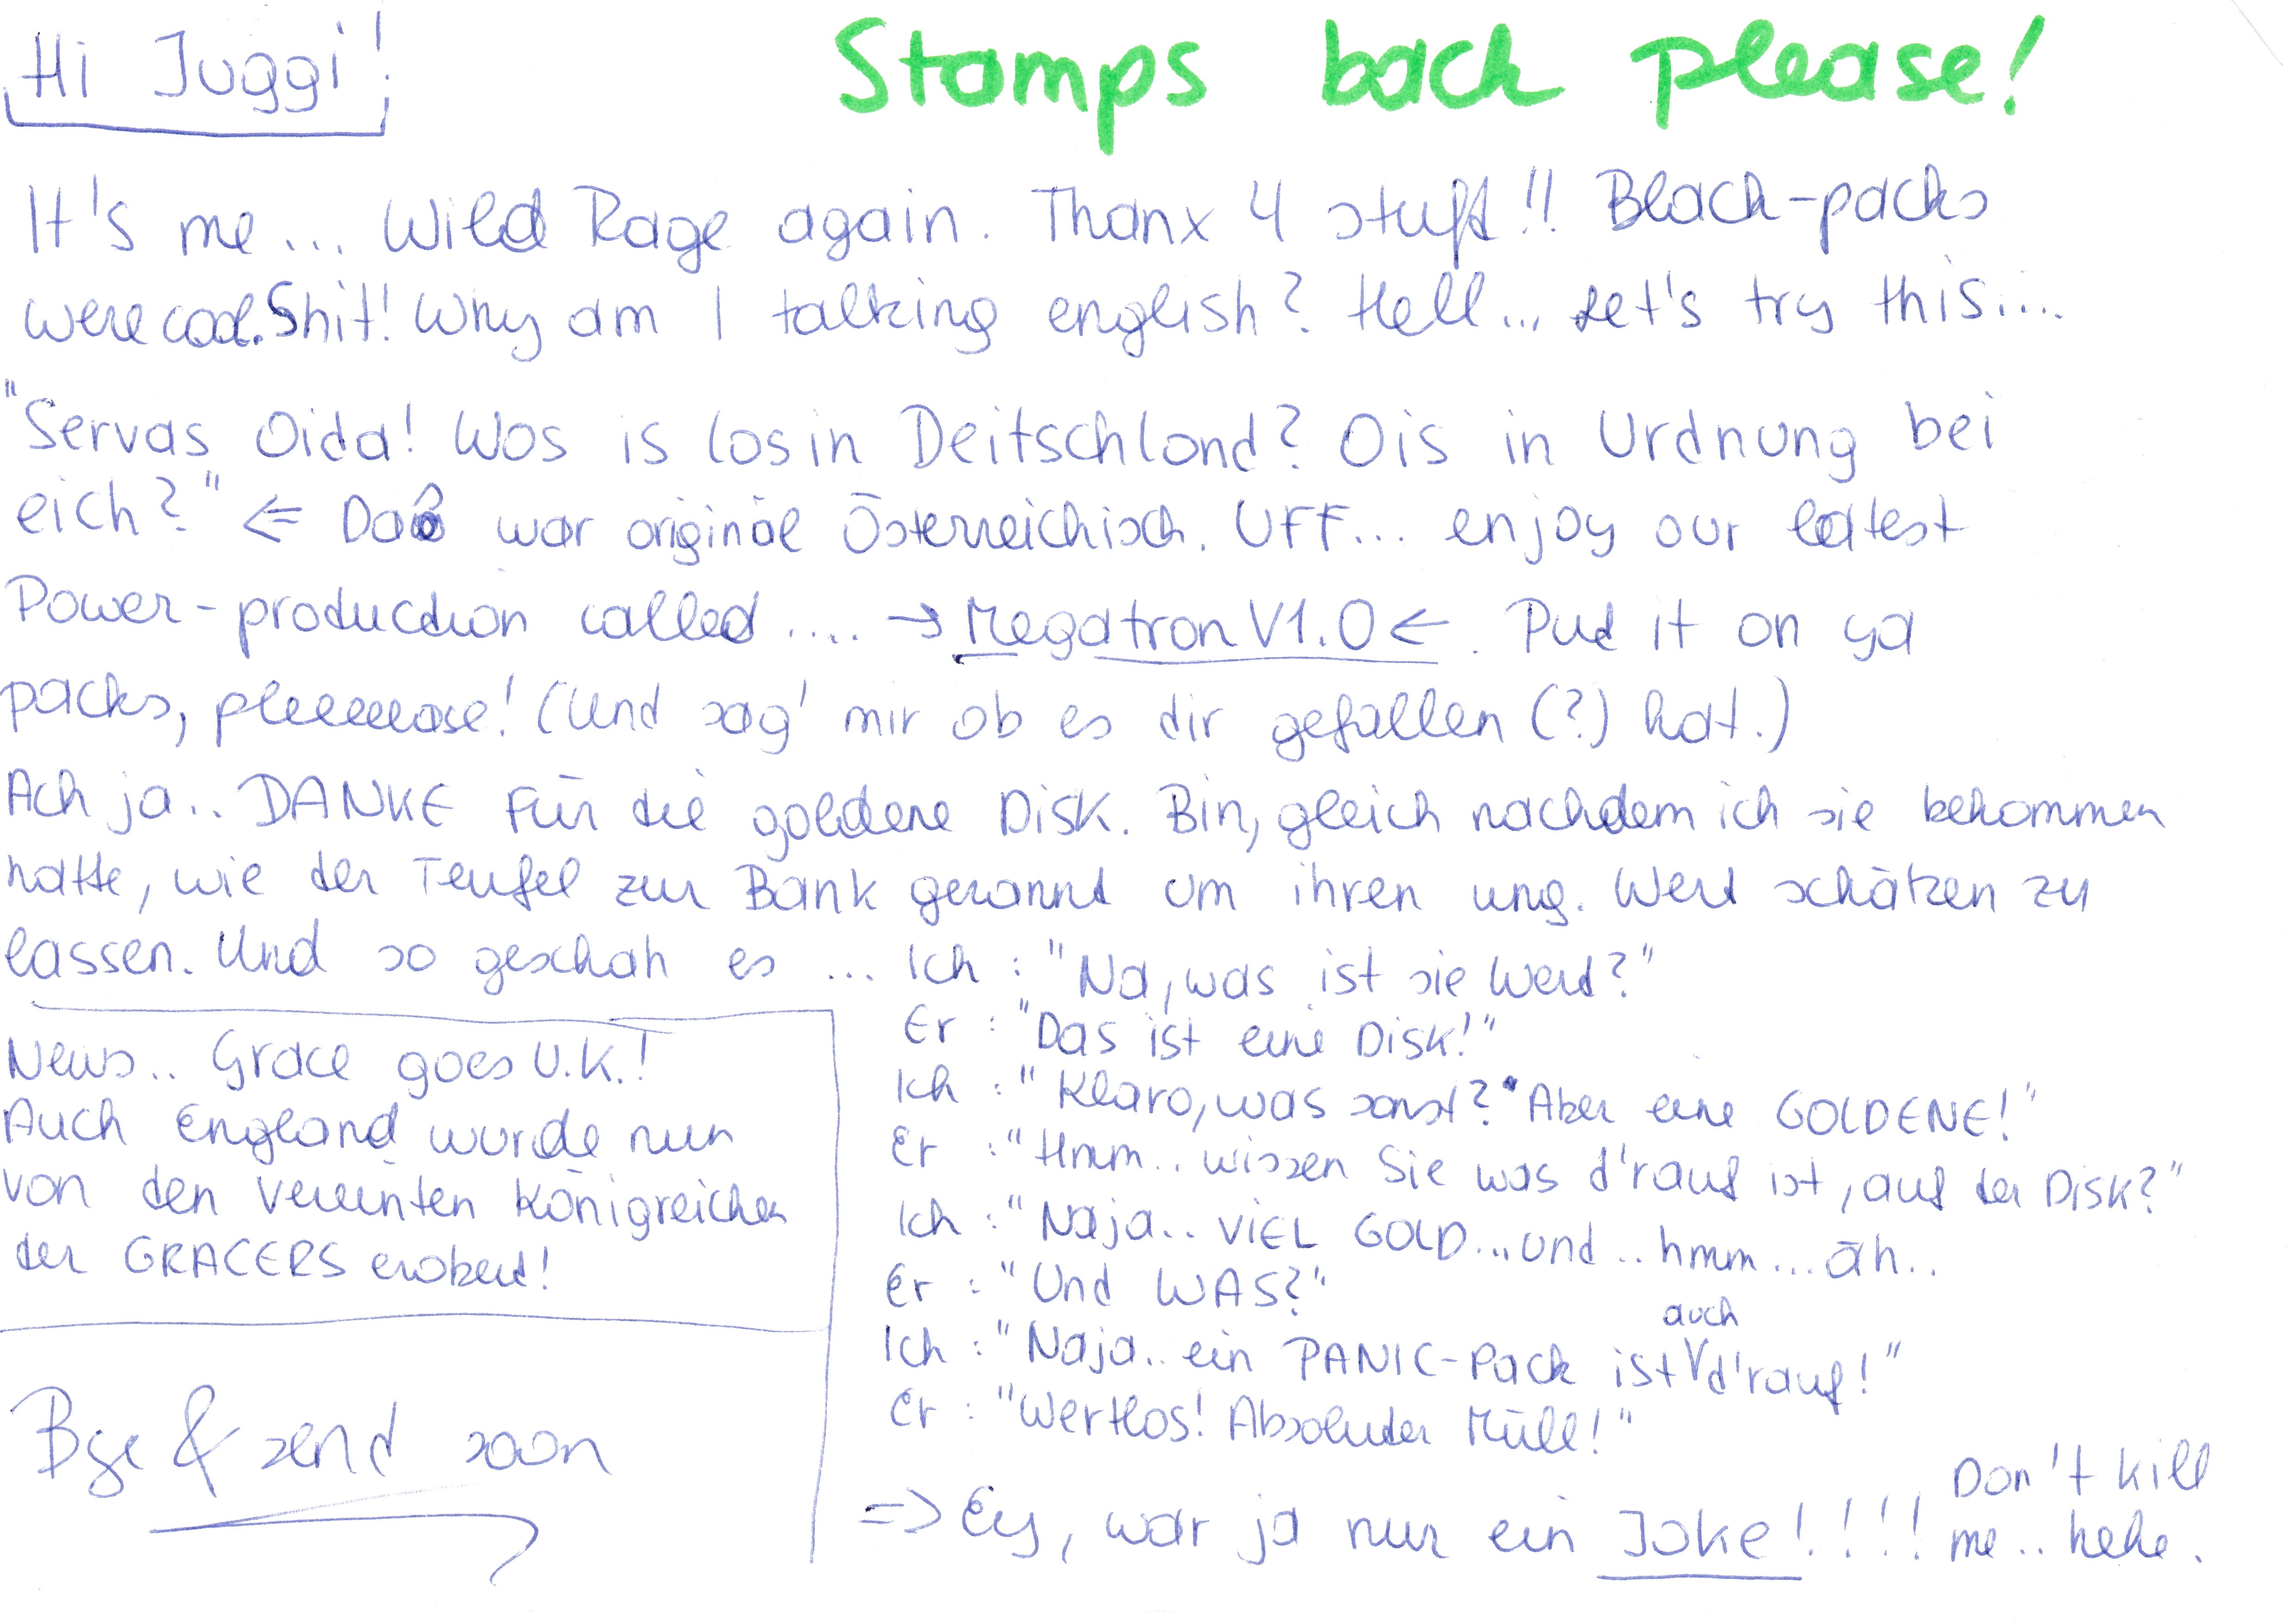 Hi Juggi!
Stamps back please!
It's me... Wild Rage again. Thanx 4 stuff!! Black-packs
were cool. Shit! Why am I talking english? Hell... Let's try this....
"Servas Oida! Wos is los in Deitschlond? Ois in Urdnung bei
eich?" <= Daß war original Österreichisch. UFF... enjoy our latest
Power-production called .... -> Megatron V1.0 <- . Put it on ya
packs, pleeeeease! (Und sag' mir ob es dir gefallen (?) hat.)
Ach ja.. DANKE für die goldene Disk. Bin, gleich nachdem ich sie bekommen
hatte, wie der Teufel zur Bank gerannt um ihren ung. Wert schätzen zu
lassen. Und so geschah es ... Ich : "Na, was ist sie Wert?"
Er : "Das ist eine Disk!"
Ich : "Klaro, was sonst? Aber eine GOLDENE!"
Er : "Hmm.. wissen Sie was d'rauf ist, auf der Disk?"
Ich : "Naja.. VIEL GOLD... und .. hmm ... äh..
Er : "Und WAS?"
Ich : "Naja.. ein PANIC-Pack ist auch d'rauf!"
Er : "Wertlos! Absoluter Müll!"
=> Ey, war ja nur ein Joke!!!!! Don't kill
me .. hehe.
News.. Grace goes U.K.!
Auch England wurde nun
von den Vereinten Königreichen
der GRACERS erobert!
Bye & send soon